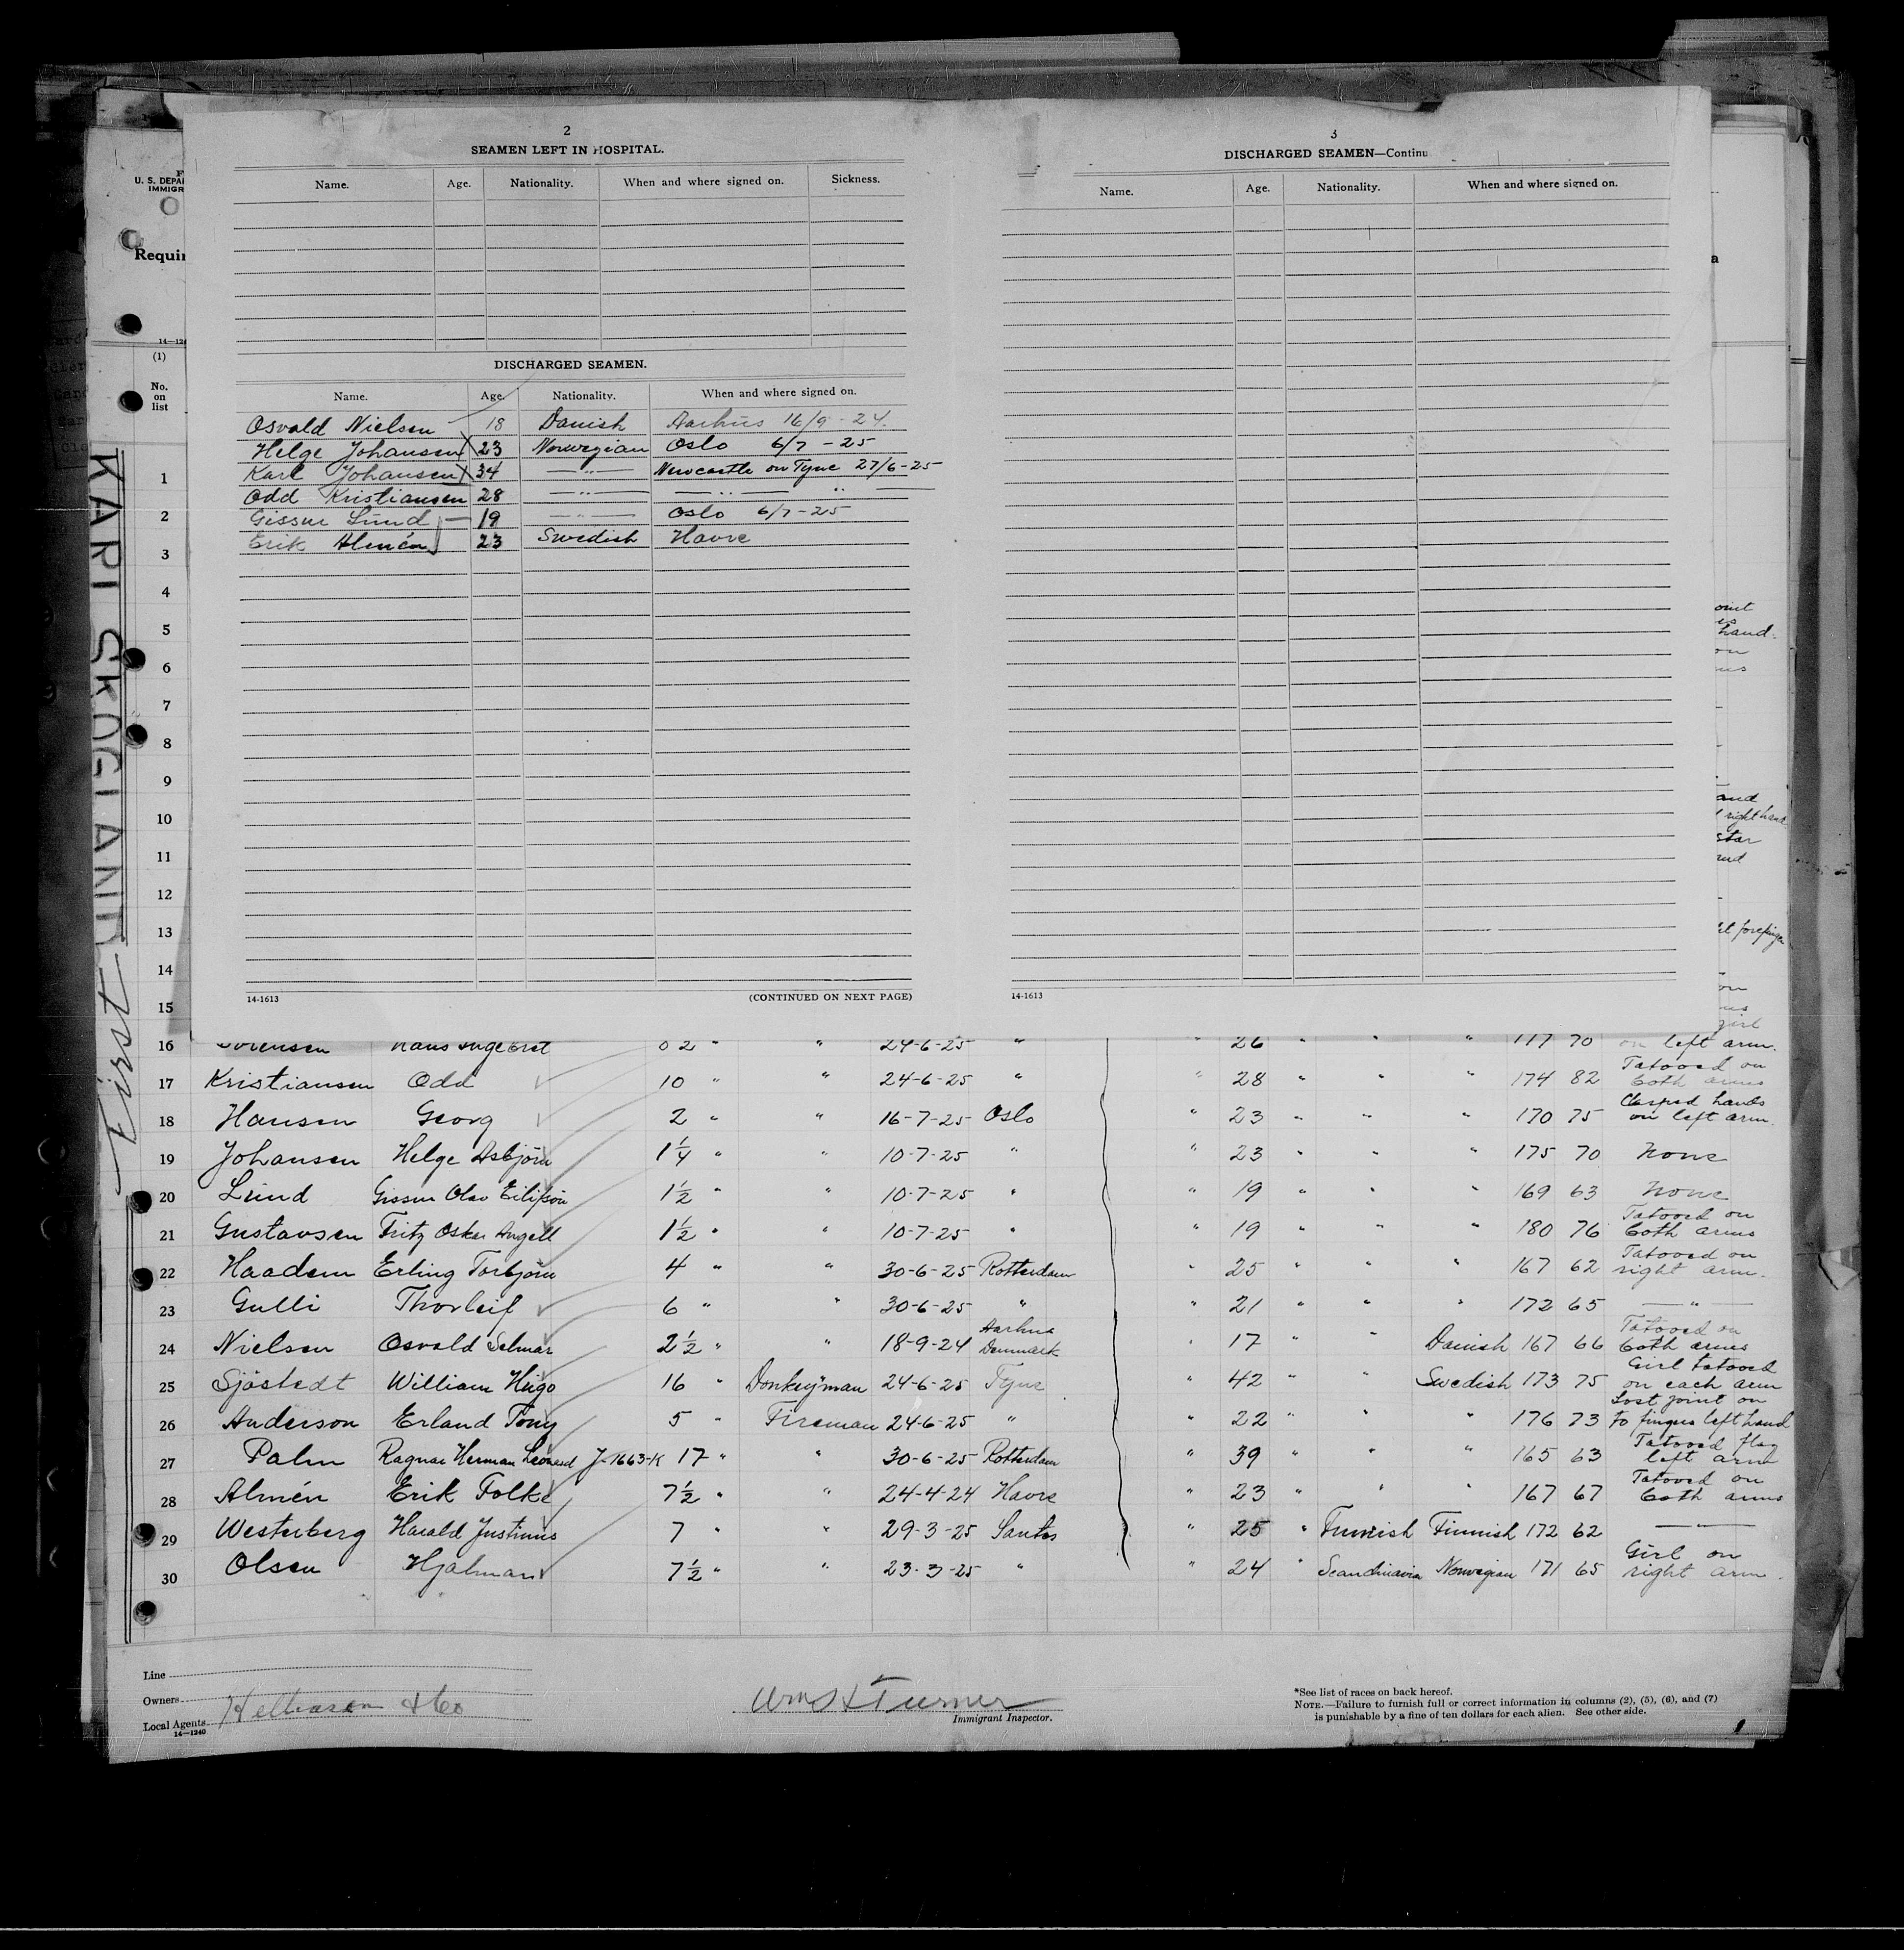 2
SEAMEN LEFT IN HOSPITAL.
Name. Age. Nationality. When and where signed on. Sickness.
DISCHARGED SEAMEN.
Name. Age. Nationality. When and where signed on.
Osvald Nielsen 18 Danish Aarhus 16/9-24.
Helge Johansen 23 Norwegian Oslo 6/7-25
Karl Johansen 34 —"— Newcastle on Tyne 27/6-25
Odd Kristiansen 28 —"— —"— "
Gissur Lund 19 —"— Oslo 6/7-25
Erik Almén 23 Swedish Havre
14-1613 (CONTINUED ON NEXT PAGE)
3
DISCHARGED SEAMEN—Continu
Name. Age. Nationality. When and where signed on.
14-1613
U. S. DEPA
IMMIGR
Requir
14—124
(1)
No.
on
list
KARI SKOGLAND
First
1
2
3
4
5
6
7
8
9
10
11
12
13
14
15
a
oint
hand.
on
and
right hand
star
forefinger
on
girl
16 Sorensen Hans Ingebret 02 " " 24-6-25 " " 26 " " " 177 70 on left arm.
17 Kristiansen Odd 10 " " 24-6-25 " " 28 " " " 174 82 Tatooed on both arms
18 Hansen Georg 2 " 16-7-25 Oslo " 23 " " " 170 75 Clasped hands on left arm.
19 Johansen Helge Asbjörn 1 1/4 " " 10-7-25 " " 23 " " " 175 70 None
20 Lund Gissur Olav 1 1/2 " " 10-7-25 " " 19 " " " 169 63 None
21 Gustavsen Fritz Oskar Angell 1 1/2 " " 10-7-25 " " 19 " " " 180 76 Tatooed on both arms
22 Haadem Erling Torbjörn 4 " " 30-6-25 Rotterdam " 25 " " " 167 62 Tatooed on right arm.
23 Gulli Thorleif 6 " " 30-6-25 " " 21 " " " 172 65 —"—
24 Nielsen Osvald Selmar 2 1/2 " " 18-9-24 Aarhus Denmark " 17 " " Danish 167 66 Tatooed on both arms
25 Sjöstedt William Hugo 16 " Donkeyman 24-6-25 Tyne " 42 " " Swedish 173 75 Girl tatooed on each arm
26 Anderson Erland Tony 5 " Fireman 24-6-25 " " 22 " " " 176 73 Lost joint on to fingers left hand
27 Palm Ragnar Herman Leonard J-1663-K 17 " " 30-6-25 Rotterdam " 39 " " " 165 63 Tatooed flag left arm
28 Almén Erik Folke 7 1/2 " " 24-4-24 Havre " 23 " " " 167 67 Tatooed on both arms
29 Westerberg Harald Justinus 7 " " 29-3-25 Santos " 25 " Finnish Finnish 172 62 —"—
30 Olsen Hjalmar 7 1/2 " " 23-3-25 " " 24 " Scandinavia Norwegian 171 65 Girl on right arm.
Line
Owners
Local Agents
14—1240
Immigrant Inspector.
*See list of races on back hereof.
NOTE.—Failure to furnish full or correct information in columns (2), (5), (6), and (7)
is punishable by a fine of ten dollars for each alien. See other side.